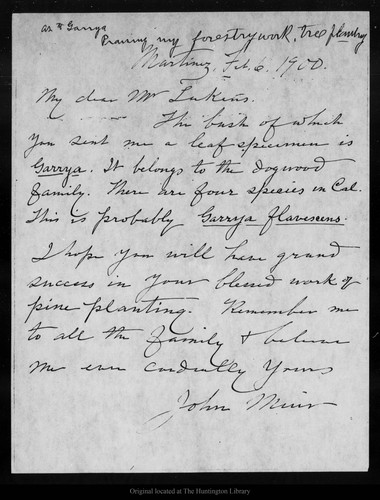 as to Garrya
Praising my forestry work, tree planting
Martinez, Feb. 6. 1900.
My dear Mr Lukens.
The bush of which
you sent me a leaf specimen is
Garrya. It belongs to the dogwood
family. There are four species in Cal.
This is probably Garrya flavescens.
I hope you will have grand
success in your blessed work of
pine planting. Remember me
to all the family & believe
me ever cordially yours
John Muir
Original located at The Huntington Library